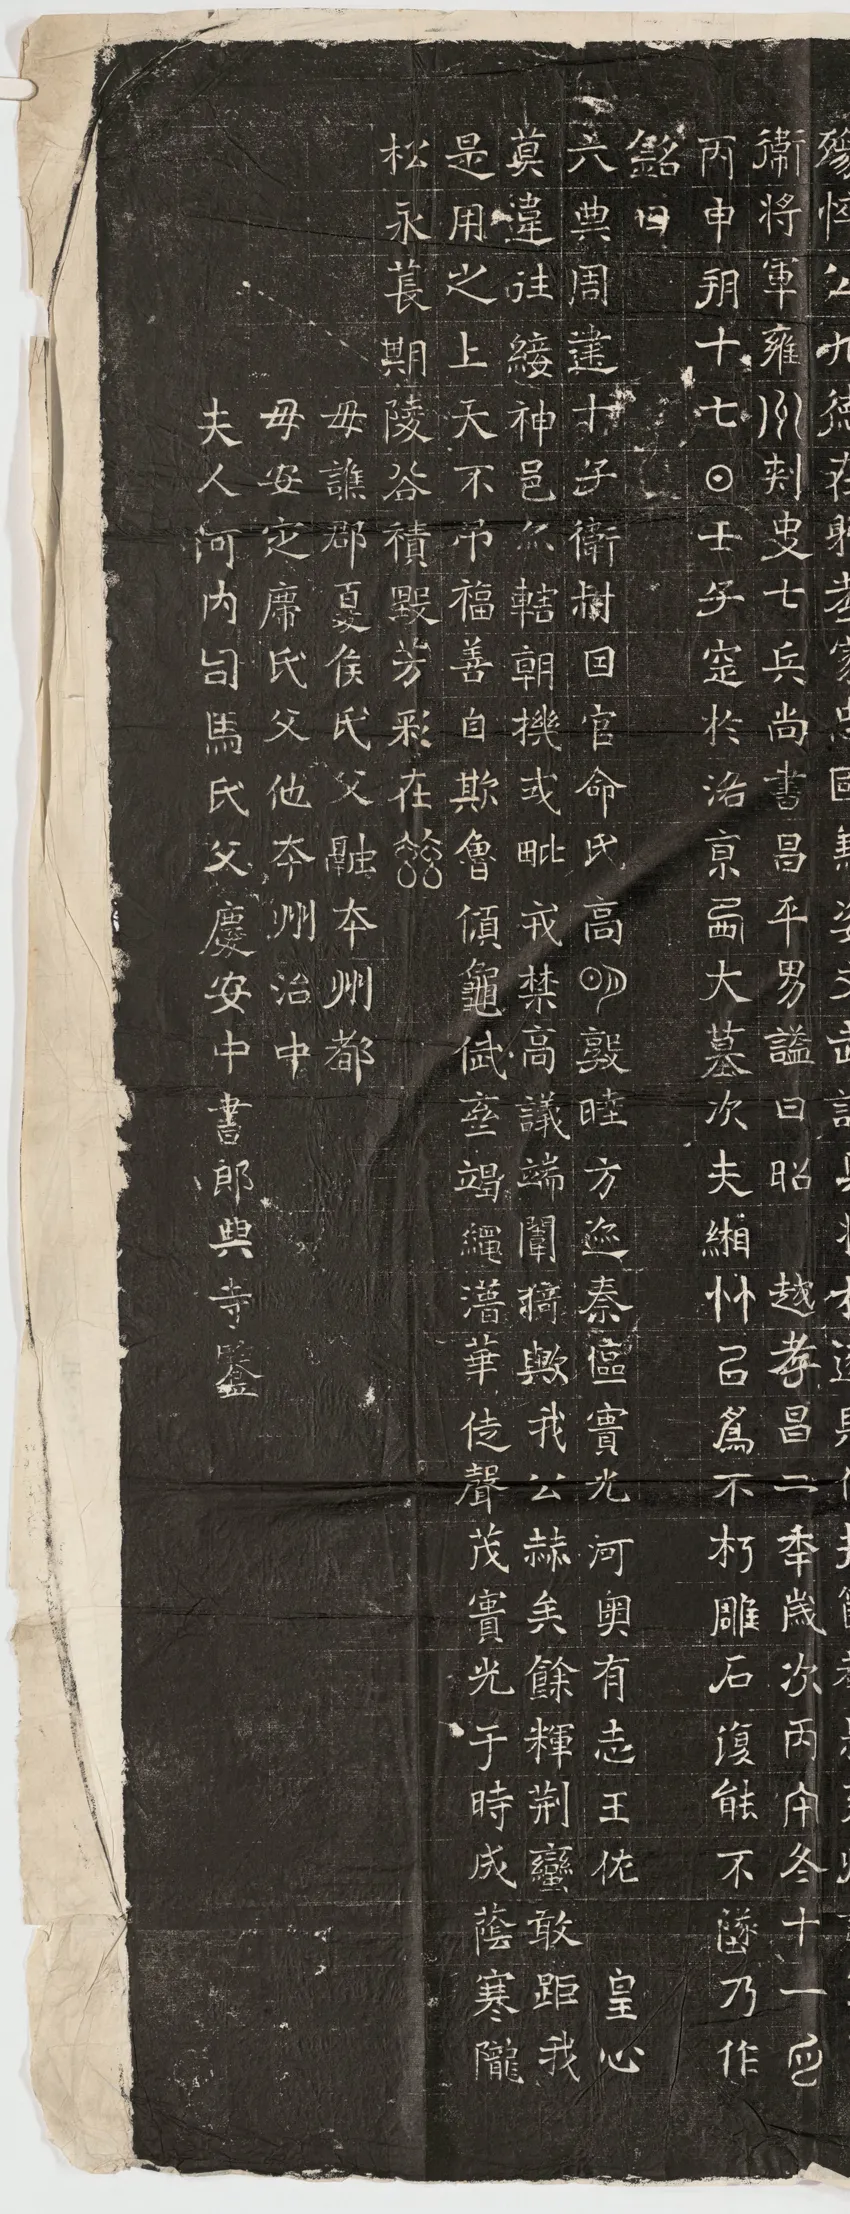 公九德在躬孝家忠國無
衛將軍雍州刺史七兵尚書昌平男謚曰昭　越孝昌二季歲次丙午冬十一月
丙申朔十七日壬子窆於洛京西大墓次夫緗竹已爲不朽雕石復能不墜乃作
銘曰
六典周建才子衛樹因官命氏高明敦睦方迩秦傴實光河輿有志王佐　皇心
莫違往綏神邑爪轄朝機或毗戎禁高議端闈猗歟我公赫矣餘輝荊蠻敢距我
是用之上天不弔福善自欺魯傾龜坐竭繩灊華徒聲茂實光于時成蔭寒隴
松永萇期陵谷積毀芳彩在茲
母譙郡夏侯氏父融本州都
母安定席氏父他本州治中
夫人河内司馬氏父慶安中書郎典寺鑒